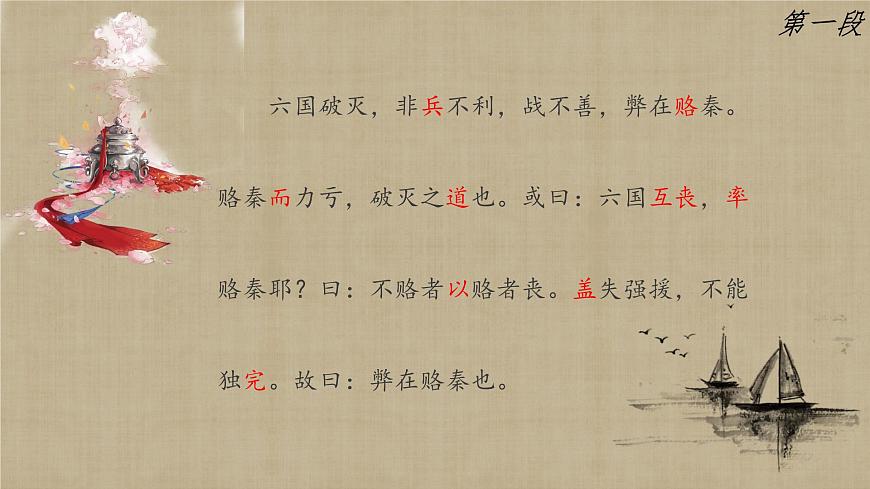 第一段
六国破灭，非兵不利，战不善，弊在赂秦。
赂秦而力亏，破灭之道也。或曰：六国互丧，率
赂秦耶？曰：不赂者以赂者丧。盖失强援，不能
独完。故曰：弊在赂秦也。